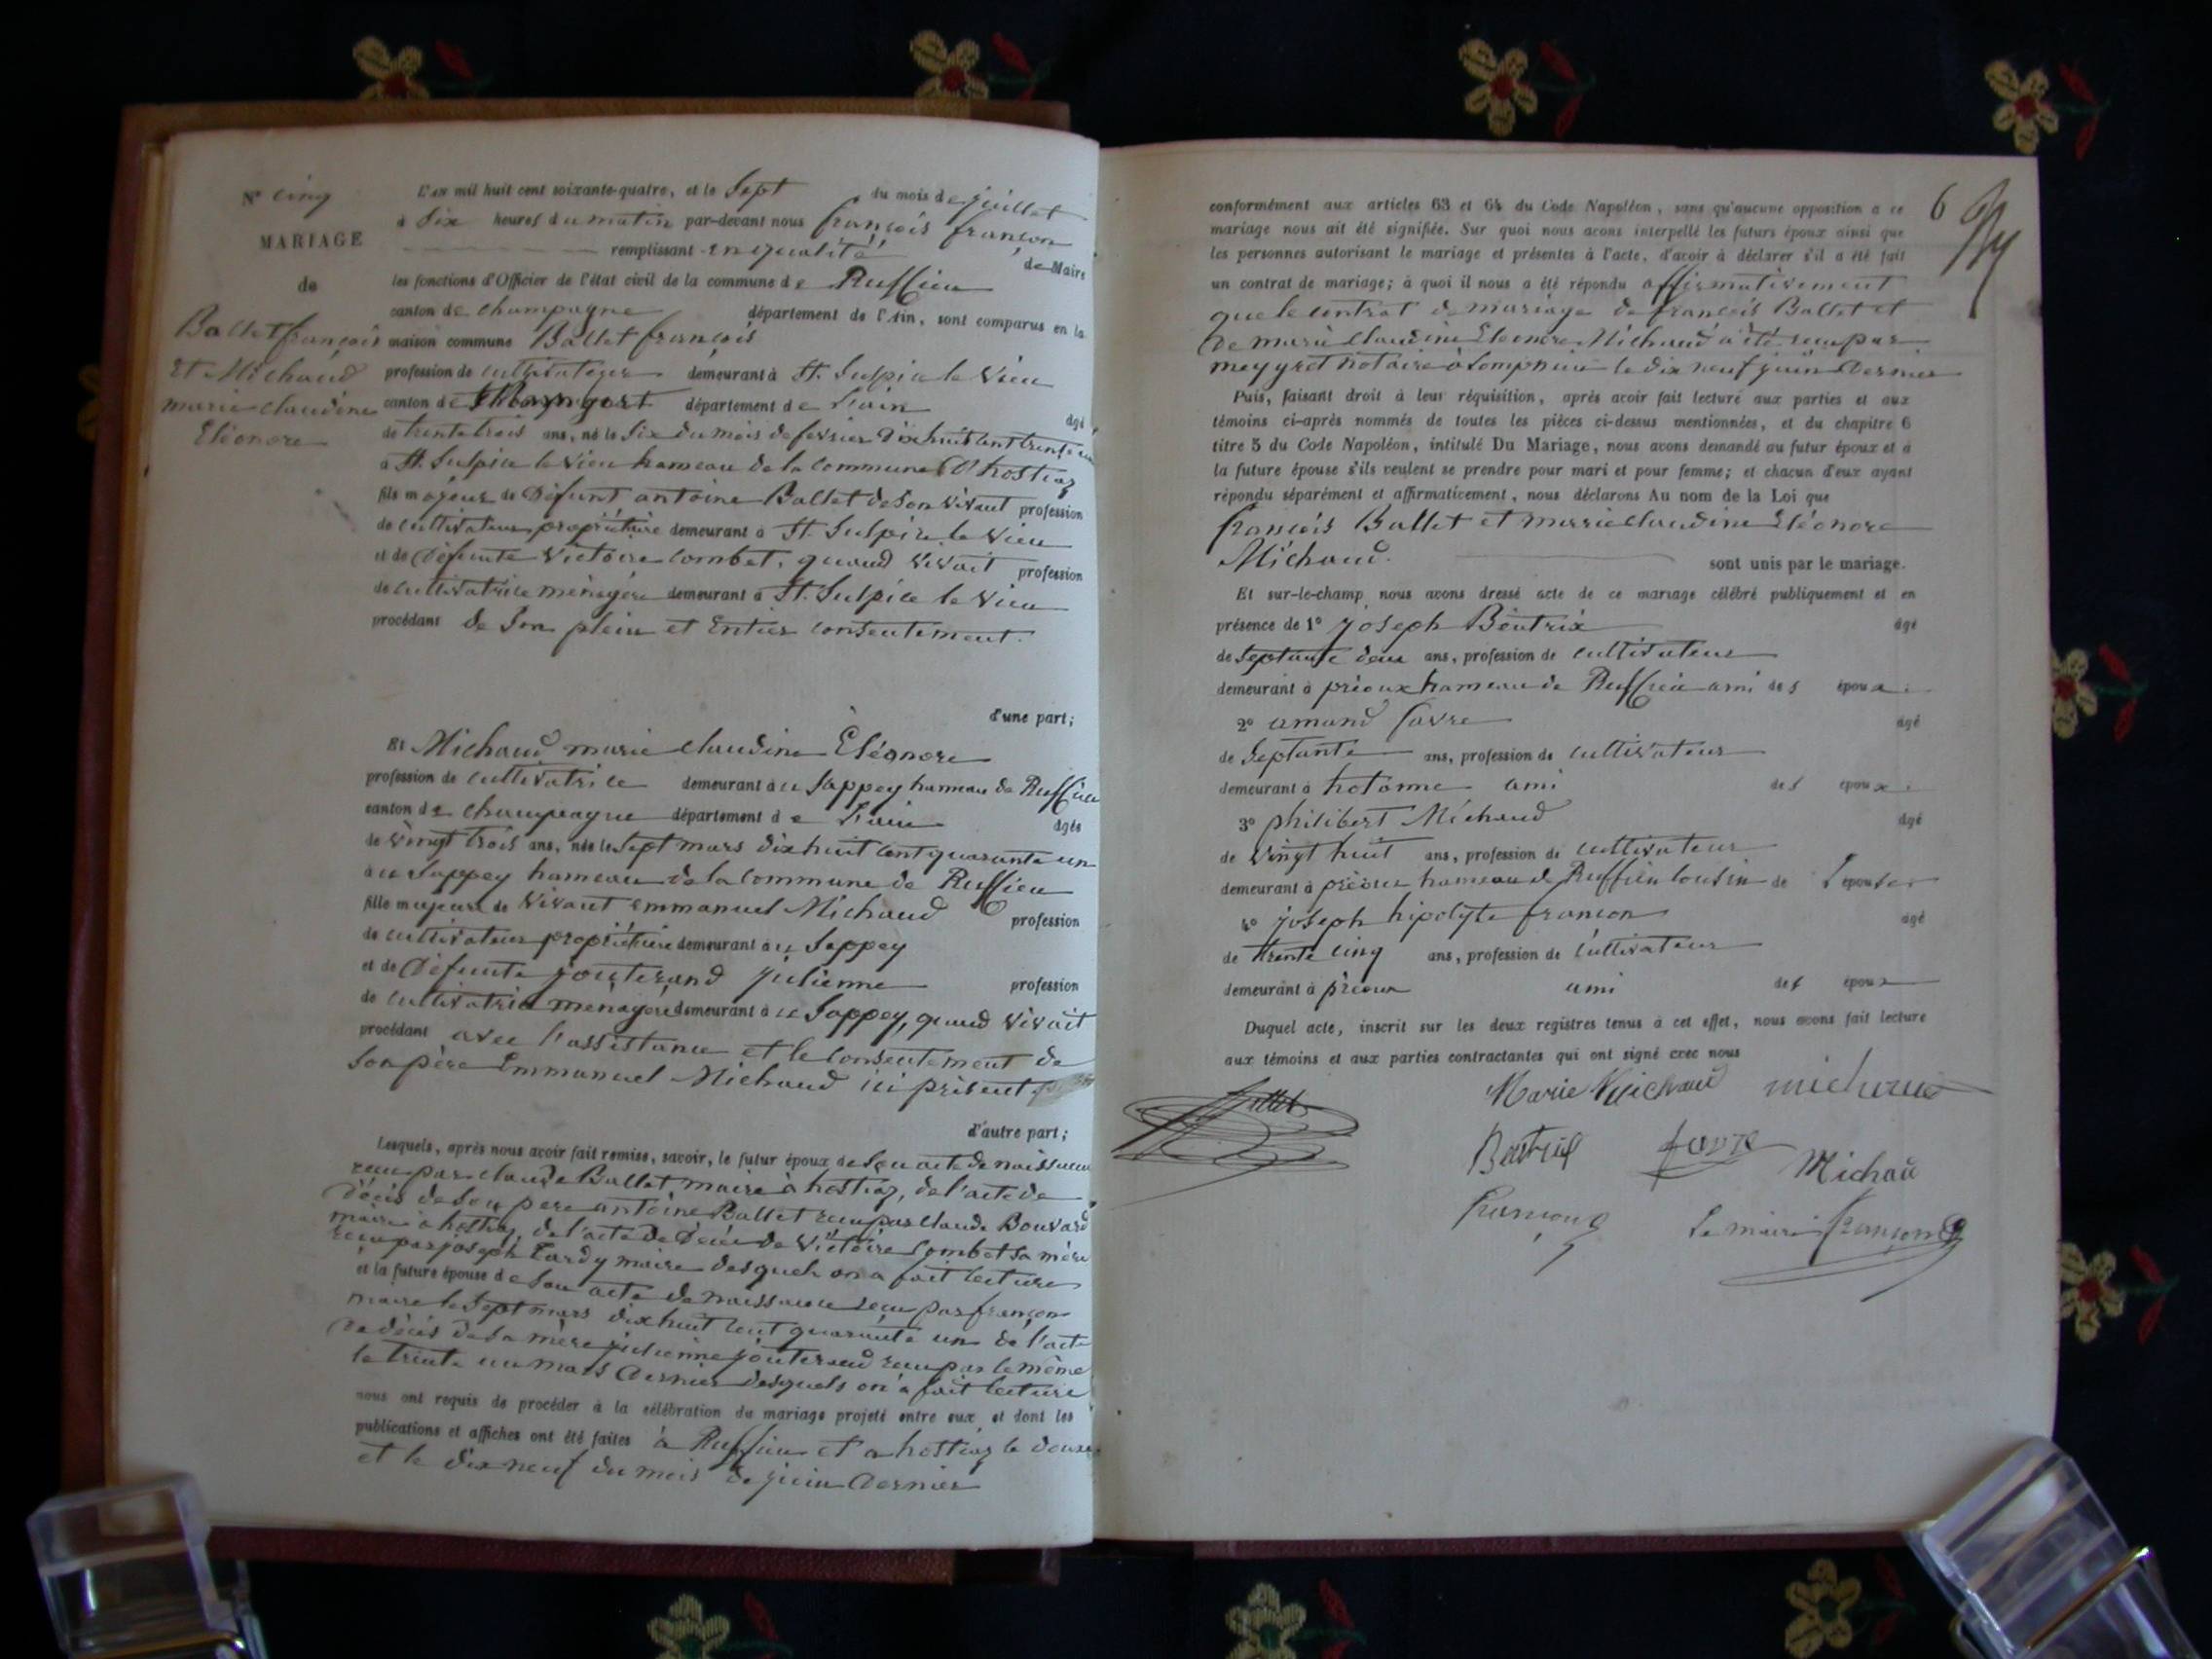 N° cinq
MARIAGE
de
Ballet françois
Et Michaud
marie claudine
Eléonore
L'an mil huit cent soixante-quatre, et le Sept du mois de juillet
à Six heures du matin par-devant nous françois françon
remplissant en qualité de Maire
les fonctions d'Officier de l'état civil de la commune de Ruffieu
canton de champagne département de l'Ain, sont comparus en la
maison commune Ballet françois
profession de cultivateur demeurant à St. Sulpice le Vieu
canton de département de L'ain âgé
de trente trois ans, né le Six du mois de fevrier dix huit cent trente un
à St. Sulpice le Vieu hameau de la commune d'hostiaz
fils majeur de Défunt antoine Ballet de Son vivant profession
de cultivateur propriétaire demeurant à St. Sulpice le Vieu
et de Défunte Victoire Combet, quand vivait profession
de cultivatrice ménagère demeurant à St. Sulpice le Vieu
procédant de Son plein et Entier consentement.
d'une part;
Et Michaud marie claudine Eléonore
profession de cultivatrice demeurant au Sappey hameau de Ruffieu
canton de champagne département de L'ain âgée
de vingt trois ans, née le Sept mars dix huit cent quarante un
au Sappey hameau de la commune de Ruffieu
fille majeure de Vivant Emmanuel Michaud profession
de cultivateur propriétaire demeurant au Sappey
et de Défunte jouterand julienne profession
de cultivatrice menagère demeurant au Sappey, quand vivait
procédant avec l'assistance et le consentement de
Son père Emmanuel Michaud ici présent
d'autre part;
Lesquels, après nous avoir fait remise, savoir, le futur époux de Son acte de naissance
reçu par claude Ballet maire à hostiaz, de l'acte de
décès de Son pere antoine Ballet reçu par claude Bouvard
maire à hostiaz, de l'acte de Décès de Victoire Combet Sa mère
reçu par joseph Tardy maire desquels on a fait lecture
et la future épouse de Son acte de naissance reçu par françon
maire le Sept mars dix huit cent quarante un de l'acte
de décès de Sa mère julienne jouterand reçu par le même
le trente un mars dernier desquels on a fait lecture
nous ont requis de procéder à la célébration du mariage projeté entre eux et dont les
publications et affiches ont été faites à Ruffieu et a hostiaz le douze
et le dix neuf du mois de juin dernier
6
conformément aux articles 63 et 64 du Code Napoléon, sans qu'aucune opposition a ce
mariage nous ait été signifiée. Sur quoi nous avons interpellé les futurs époux ainsi que
les personnes autorisant le mariage et présentes à l'acte, d'avoir à déclarer s'il a été fait
un contrat de mariage; à quoi il nous a été répondu affirmativement
que le contrat de mariage de françois Ballet et
de marie claudine Eleonore Michaud a été reçu par
meygret notaire à Lompnieu le dix neuf juin dernier
Puis, faisant droit à leur réquisition, après avoir fait lecture aux parties et aux
témoins ci-après nommés de toutes les pièces ci-dessus mentionnées, et du chapitre 6
titre 5 du Code Napoléon, intitulé Du Mariage, nous avons demandé au futur époux et à
la future épouse s'ils veulent se prendre pour mari et pour femme; et chacun d'eux ayant
répondu séparément et affirmativement, nous déclarons Au nom de la Loi que
françois Ballet et marie claudine Eléonore
Michaud. sont unis par le mariage.
Et sur-le-champ nous avons dressé acte de ce mariage célébré publiquement et en
présence de 1° joseph Béatrix âgé
de Septante deux ans, profession de cultivateur
demeurant à préoux hameau de Ruffieu ami des époux
2° amand favre âgé
de Septante ans, profession de cultivateur
demeurant à hotonne ami des époux
3° philibert Michaud âgé
de vingt huit ans, profession de cultivateur
demeurant à préoux hameau de Ruffieu cousin de l'épouse
4° joseph hipolyte françon âgé
de trente cinq ans, profession de cultivateur
demeurant à préoux ami des époux
Duquel acte, inscrit sur les deux registres tenus à cet effet, nous avons fait lecture
aux témoins et aux parties contractantes qui ont signé avec nous
Ballet Marie Michaud michaud
Béatrix favre Michaud
françon Le maire françon